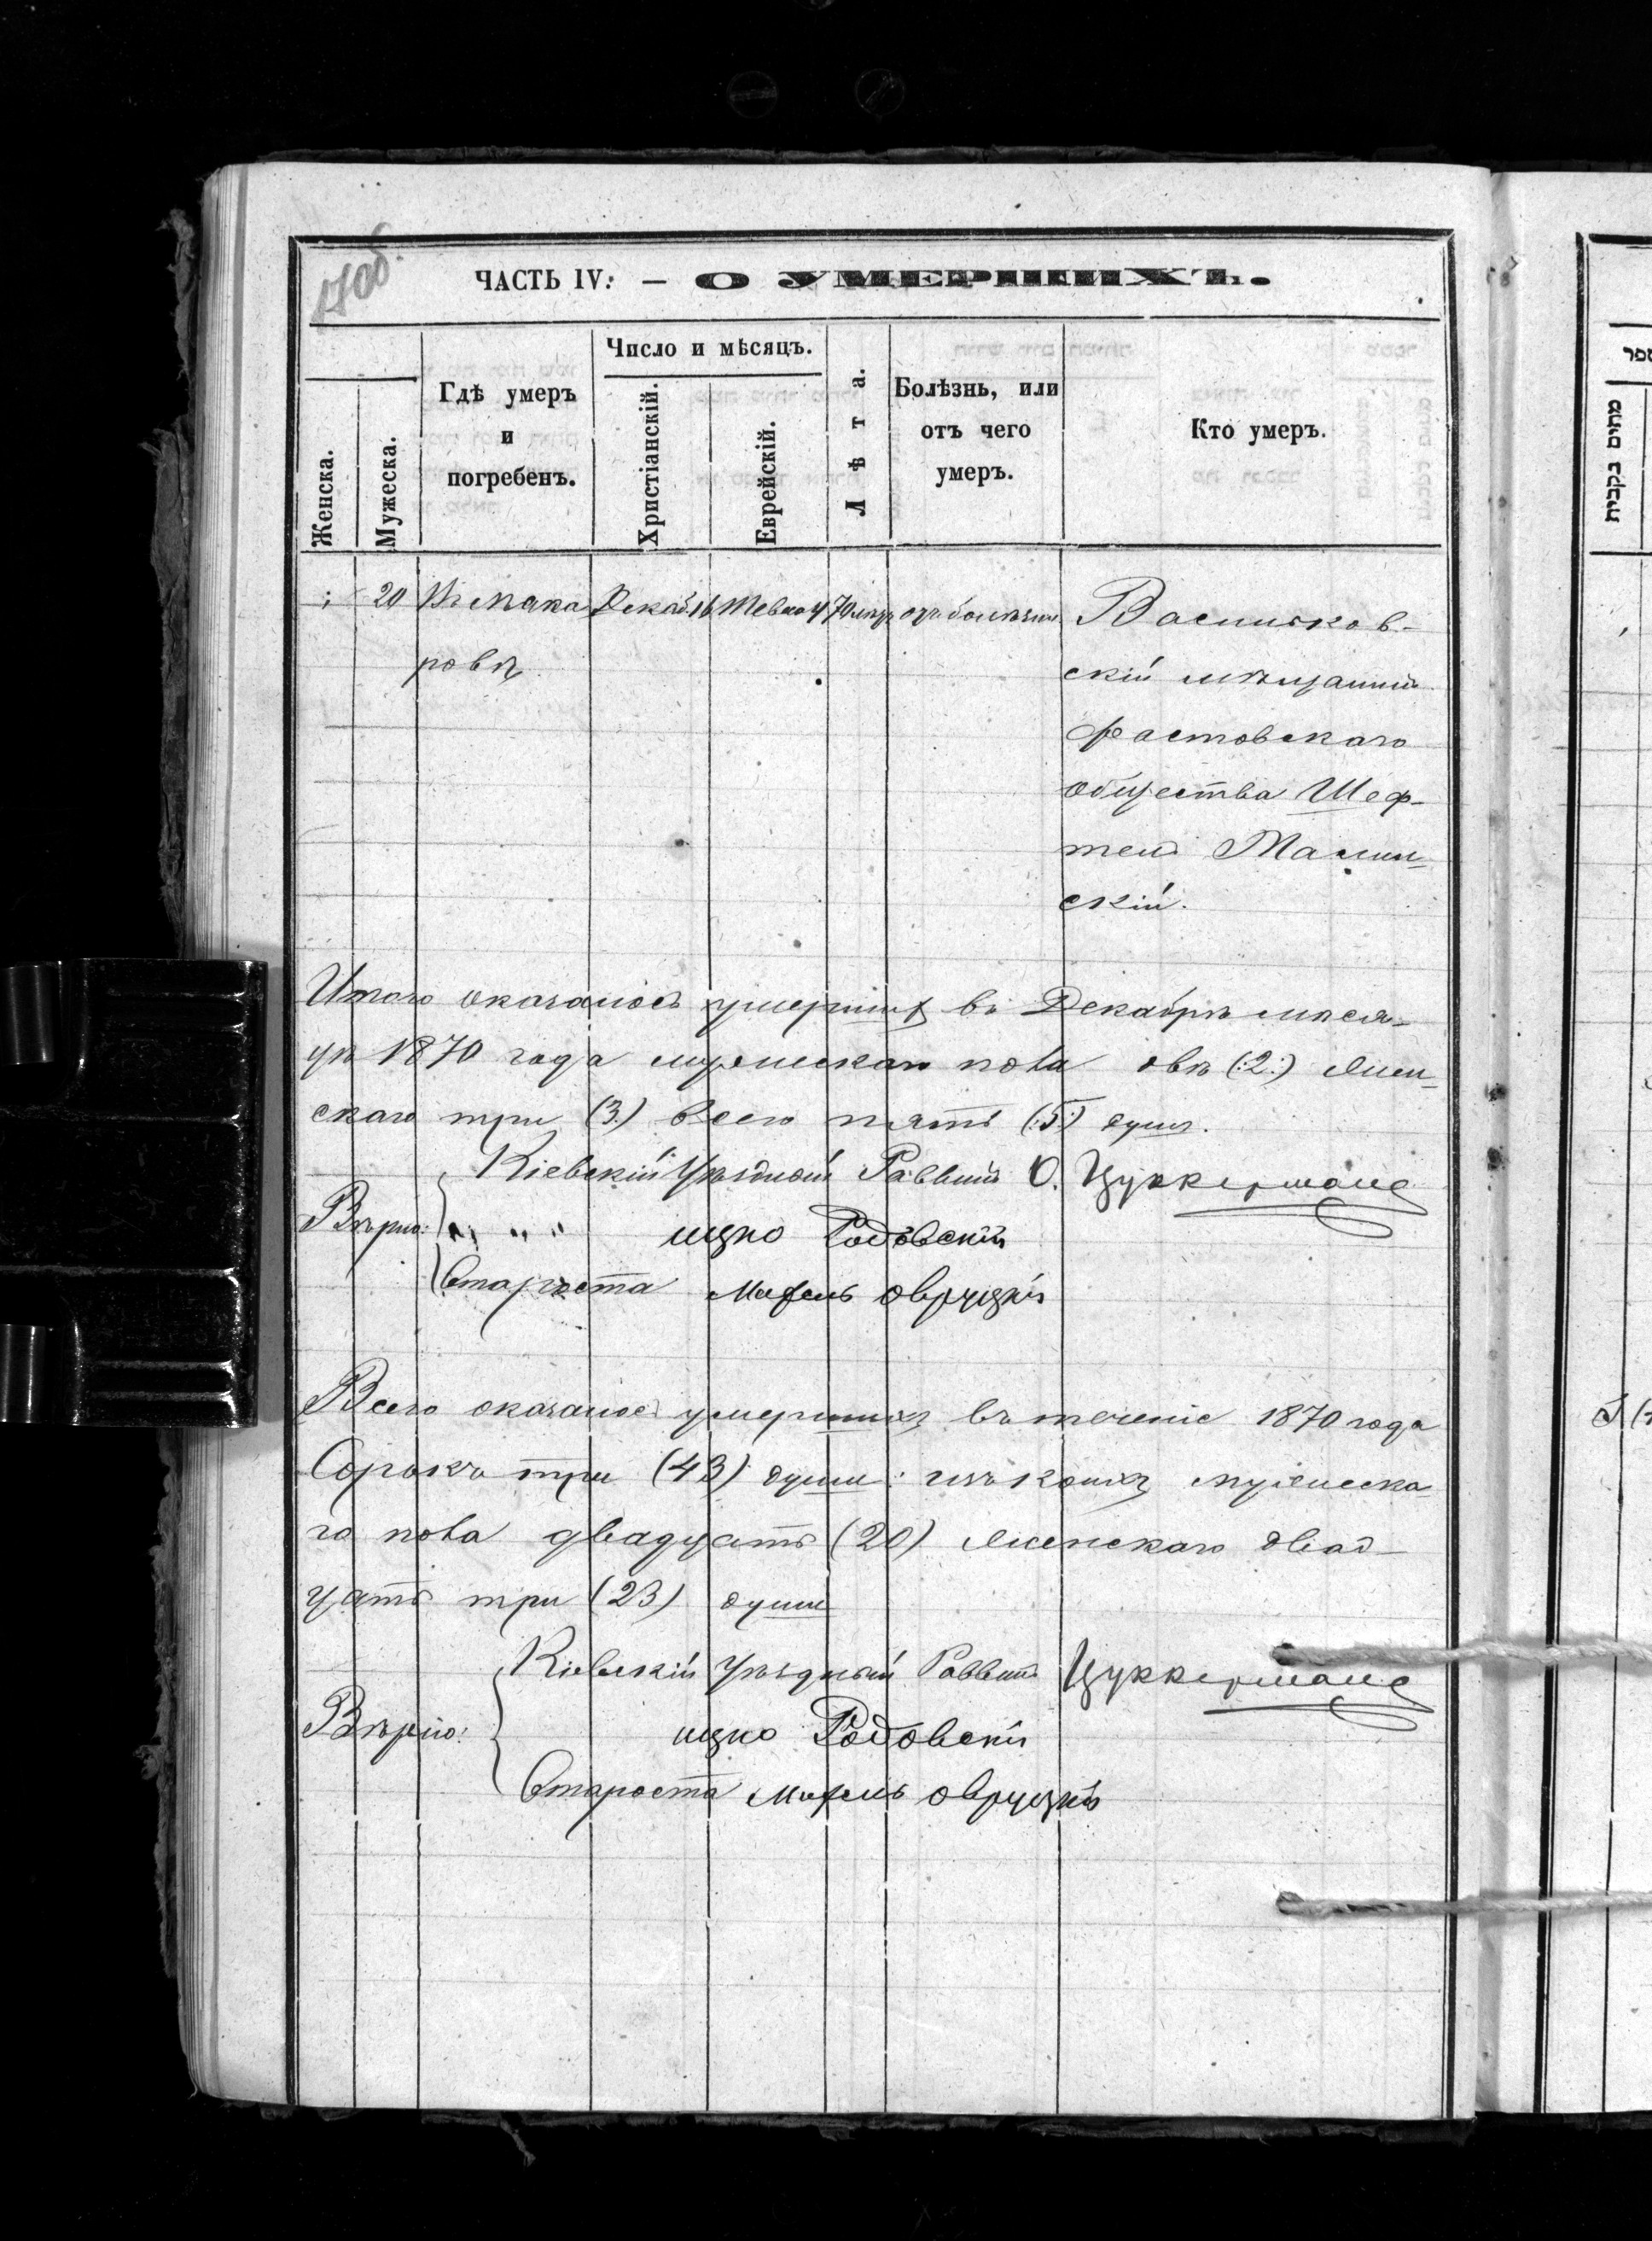 170об.
ЧАСТЬ IV: — О УМЕРШИХЪ.
Женска.
Мужеска.
Гдѣ умеръ
и
погребенъ.
Число и мѣсяцъ.
Христіанскій.
Еврейскій.
Лѣта.
Болѣзнь, или
отъ чего
умеръ.
Кто умеръ.
20 Въ Мака Декаб. 16 Тевес 4 70 лѣтъ отъ болѣзни Васильков-
ровѣ скій мѣщанинъ
Фастовскаго
общества Шеф-
тель Малин-
скій.
Итого оказалось умершихъ въ Декабрѣ меся-
цѣ 1870 года мужескаго пола двѣ (:2:) Жен-
скаго три (3:) всего пять (:5:) душъ.
Кіевскій Уѣздный Раввинъ О. Цуккерманъ
Вѣрно: „ „ „ ицко Родовскій
Староста Овруцкій
Всего оказалось умершихъ въ теченіе 1870 года
Сорокъ три (43) души: изъ коихъ мужеска-
го пола двадцать (20) Женскаго двад-
цать три (23) души
Кіевскій Уѣздный Раввинъ Цуккерманъ
Вѣрно: ицко Родовскій
Староста Овруцкій